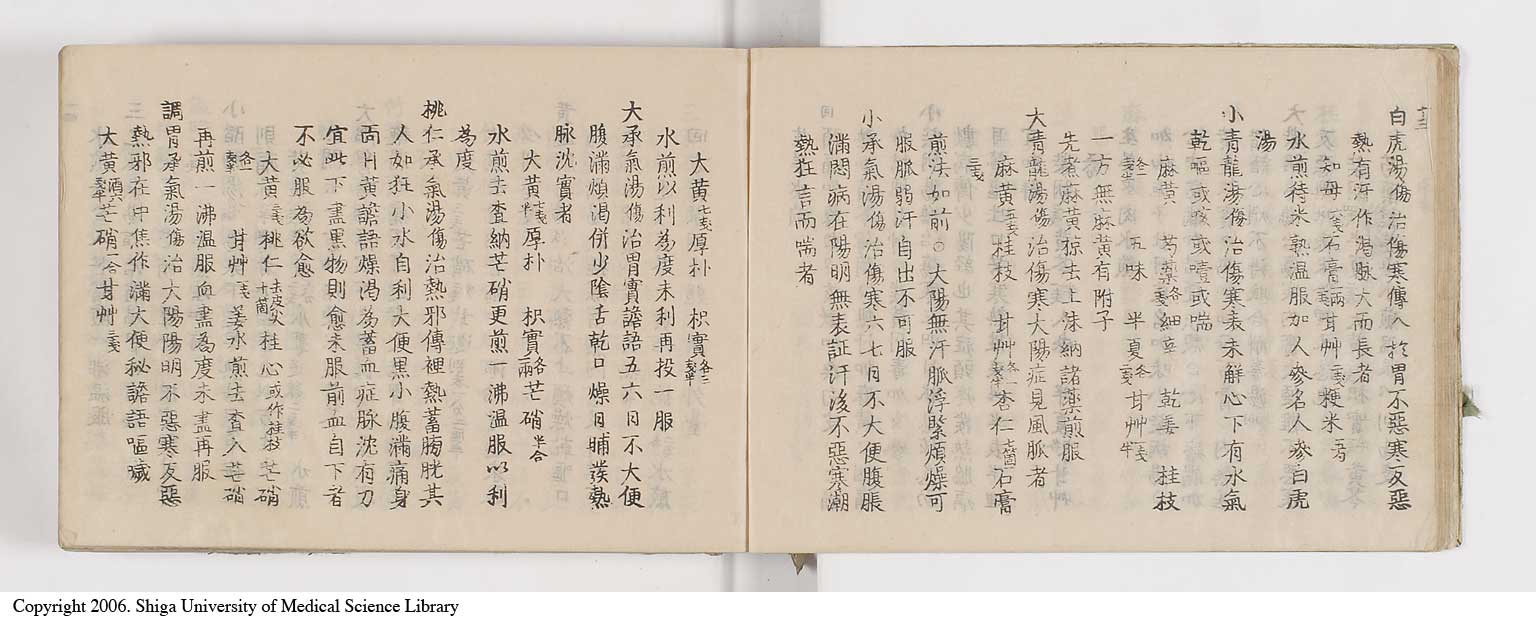 白虎湯傷治傷寒傳入於胃不惡寒反惡
熱有汗作渴脉大而長者
知母二戔石膏一兩甘艸二戔粳米一勺
水煎待米熟温服加人參名人參白虎
湯
小青龍湯傷治傷寒表未解心下有水氣
乾嘔或咳或噎或喘
麻黃 芍藥各二戔細辛 乾姜 桂枝
各一戔半 五味 半夏各二戔甘艸一戔半
一方無麻黃有附子
先煮麻黃掠去上沫納諸藥煎服
大青龍湯傷治傷寒大陽症見風脈者
麻黃三戔桂枝 甘艸各一戔半杏仁七箇石膏
三戔
煎法如前○大陽無汗脈浮緊煩燥可
服脈弱汗自出不可服
小承氣湯傷治傷寒六七日不大便腹脹
滿悶病在陽明無表証汗後不惡寒潮
熱狂言而喘者
大黃七戔厚朴 枳實各二戔半
水煎以利為度未利再投一服
大承氣湯傷治胃實譫語五六日不大便
腹滿煩渴併少陰舌乾口燥日晡發熱
脉沈實者
大黃七戔半厚朴 枳實各一兩芒硝半合
水煎去査納芒硝更煎一沸温服以利
為度
桃仁承氣湯傷治熱邪傳裡熱蓄膀胱其
人如狂小水自利大便黑小腹滿痛身
面目黃譫語燥渴為蓄血症脉沈有力
宜此下盡黑物則愈未服前血自下者
不必服為欲愈
大黃三戔桃仁去皮尖十箇桂心或作桂枝芒硝
各一戔半 甘艸一戔姜水煎去査入芒硝
再煎一沸温服血盡為度未盡再服
調胃承氣湯傷治大陽陽明不惡寒反惡
熱邪在中焦作滿大便秘譫語嘔噦
大黃酒六戔半芒硝一合甘艸二戔